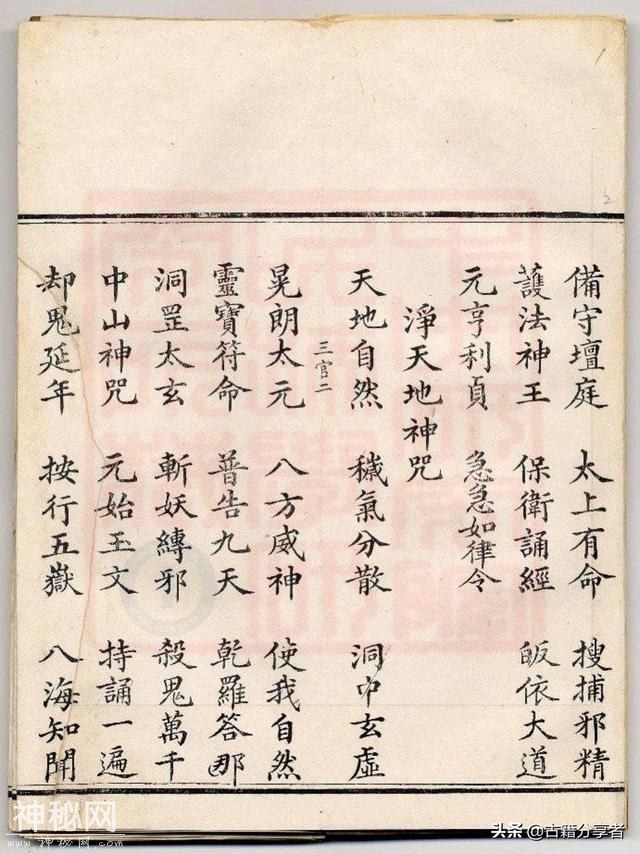 備守壇庭 太上有命 搜捕邪精
護法神王 保衛誦經 皈依大道
元亨利貞 急急如律令
淨天地神咒
天地自然 穢氣分散 洞中玄虛
三官二
晃朗太元 八方威神 使我自然
靈寶符命 普告九天 乾羅答那
洞罡太玄 斬妖縛邪 殺鬼萬千
中山神咒 元始玉文 持誦一遍
却鬼延年 按行五嶽 八海知聞
神秘网
www.神秘网.com
头条 @古籍分享者